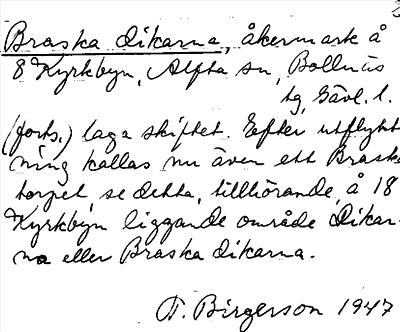 Braska dikarna, åkermark å
8 Kyrkbyn, Alfta sn, Bollnäs
tg, Gävl. l.
(forts.) laga skiftet. Efter utflytt-
ning kallas nu även ett Braska
torpet, se detta, tillhörande, å 18
Kyrkbyn liggande område Dikar-
na eller Braska dikarna.
T. Birgerson 1947